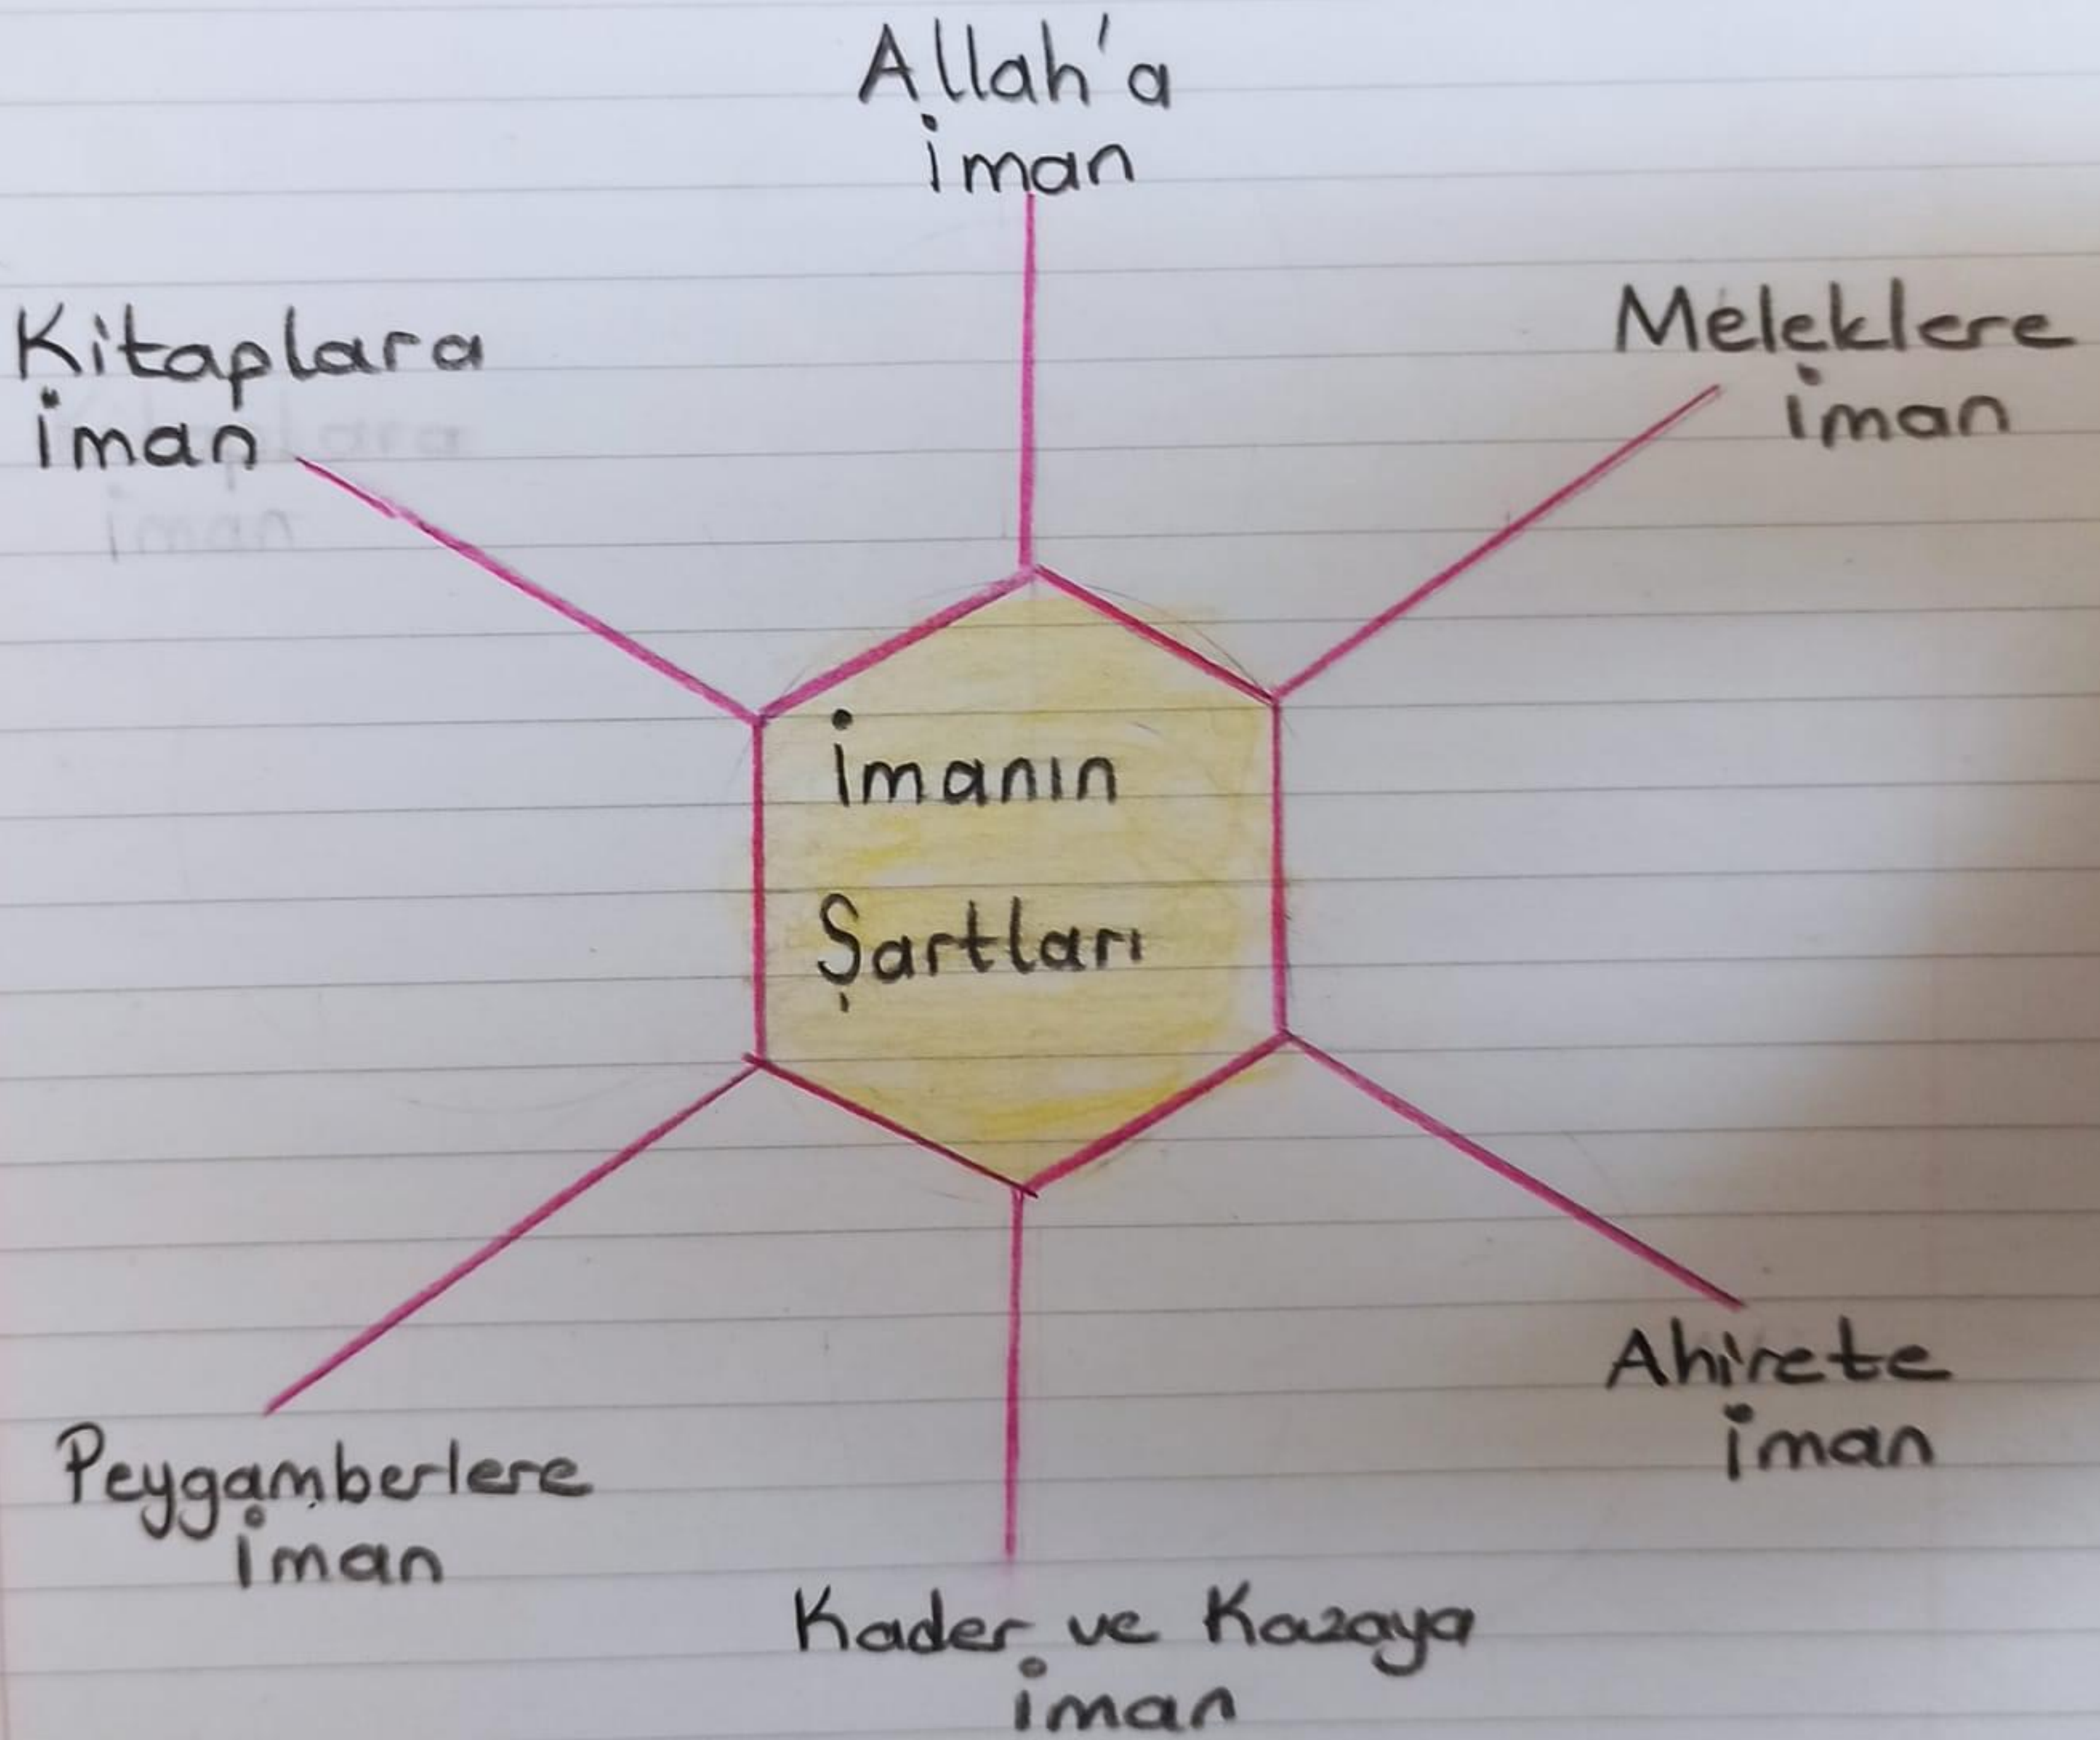 Allah'a
iman
Kitaplara
iman
Meleklere
iman
İmanın
Şartları
Ahirete
iman
Peygamberlere
iman
Kader ve Kazaya
iman